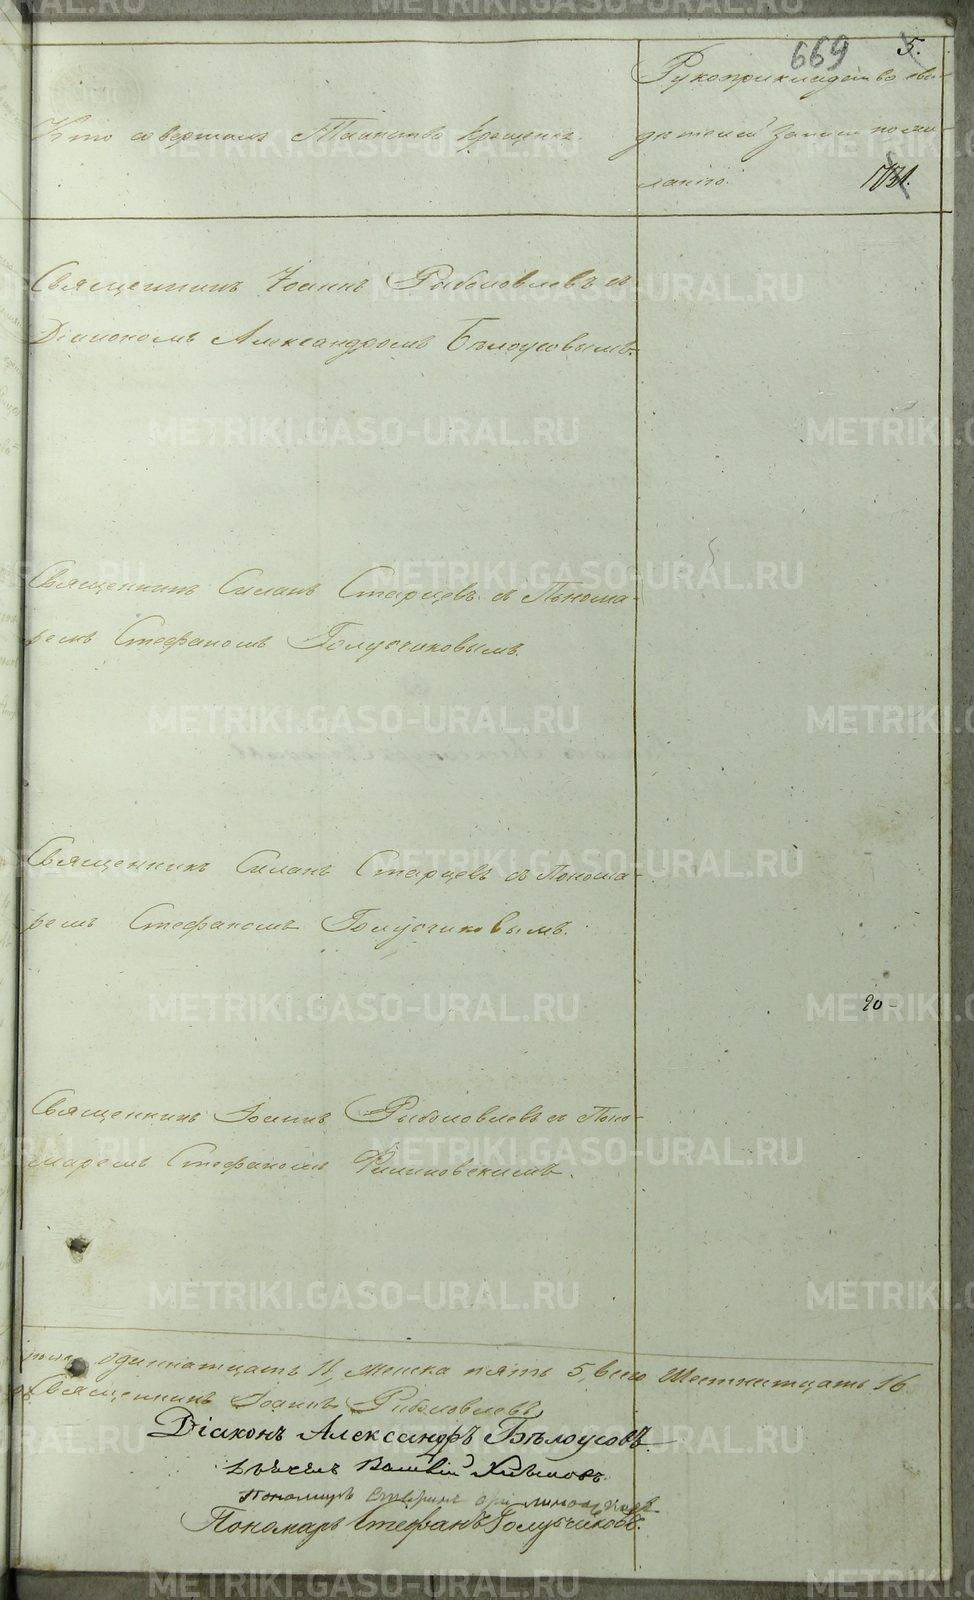 669 5.
Кто совершалъ Таинство крещенія.
Рукоприкладство сви-
дѣтелей записи по же-
ланію.
Священникъ Іоаннъ Рыболовлевъ съ
Діакономъ Александромъ Бѣлоусовымъ.
Священникъ Силанъ Старцевъ съ Понома-
ремъ Стефаномъ Голубчиковымъ.
Священникъ Силанъ Старцевъ съ Понома-
ремъ Стефаномъ Голубчиковымъ.
20
Священникъ Іоаннъ Рыболовлевъ съ Поно-
маремъ Стефаномъ Филиповскимъ.
одиннатцать 11, женска пять 5, всего Шестнатцать 16
Священникъ Іоаннъ Рыболовлевъ
Діаконъ Александръ Бѣлоусовъ.
Пономарь
Пономарь Стефанъ Голубчиковъ.
METRIKI.GASO-URAL.RU